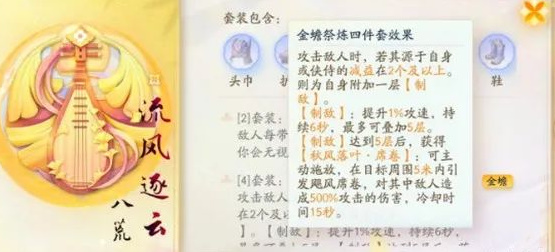 流风逐云
八荒
套装包含：
头巾
鞋
[2]套装：
敌人每带
你会无视
[4]套装：
攻击敌人
在2个及
】。【制敌】：提升1%攻速，持续6秒，
金蟾祭炼四件套效果
攻击敌人时，若其源于自身
或侠侍的减益在2个及以上。
则为自身附加一层【制
敌】。
【制敌】：提升1%攻速，持
续6秒，最多可叠加5层。
【制敌】达到5层后，获得
【秋风落叶·席卷】：可主
动施放，在目标周围5米内引
发飓风席卷，对其中敌人造
成500%攻击的伤害，冷却时
间15秒。
金蟾